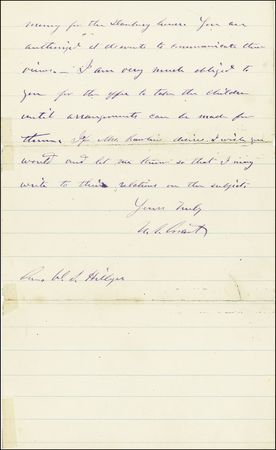 money for the Danbury house You are
authorized & desire to communicate these
views.— I am very much obliged to
you for the offer to take the children
until arrangements can be made for
them. If Mrs. Rawlins desires I wish you
would and let me know so that I may
write to their relations on the subject.
Yours Truly
U. S. Grant
Genl W. S. Hillyer